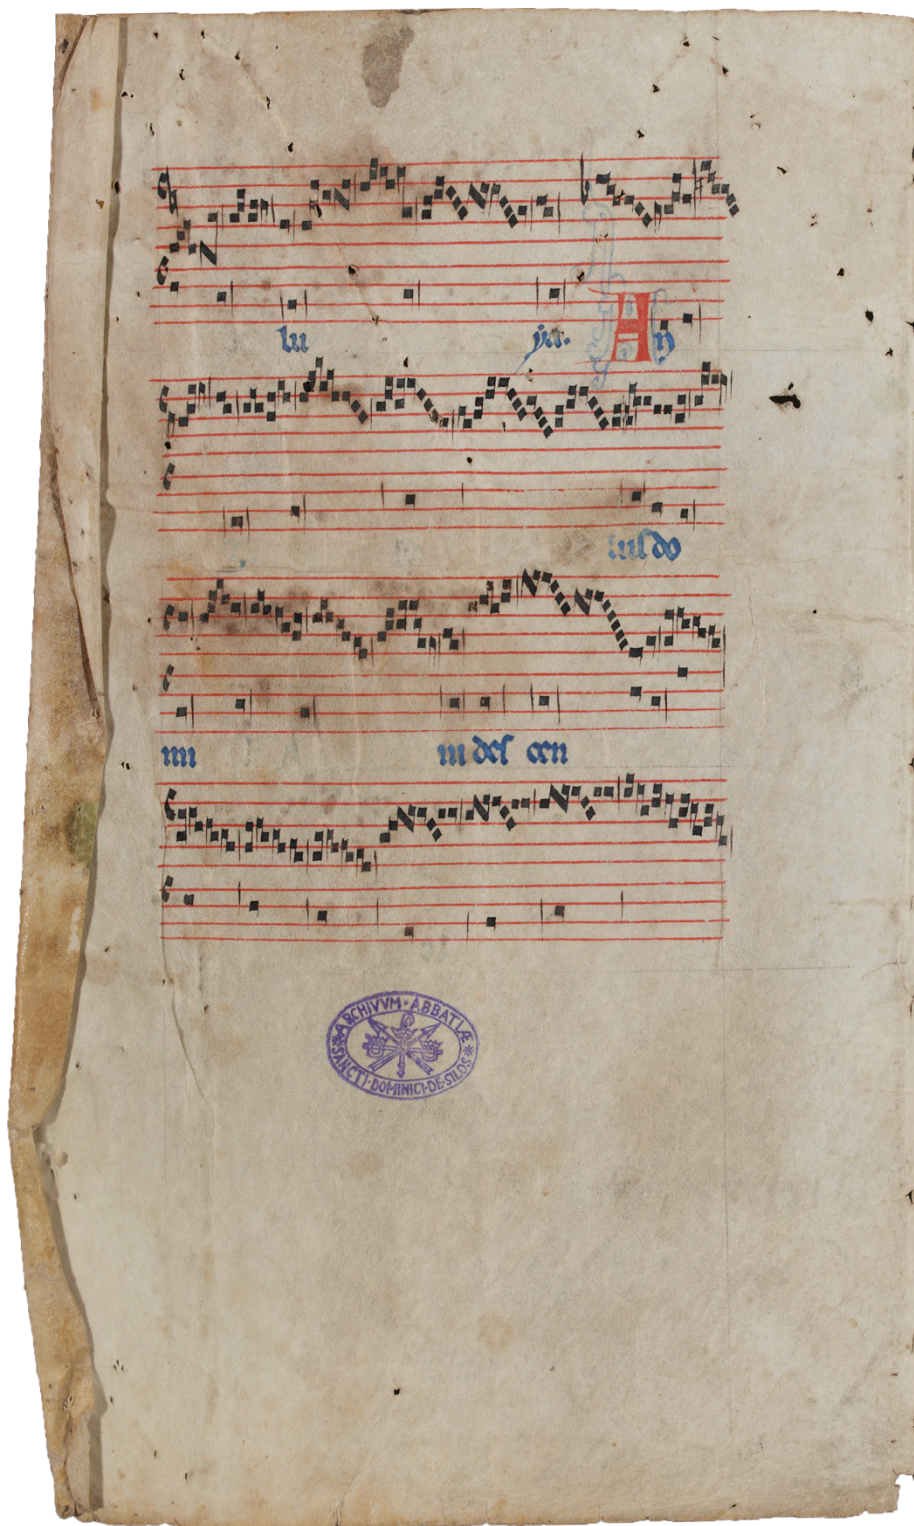 lu ya. An
iusdo
mi
ni des cen
ARCHIVVM·ABBATIÆ SANCTI·DOMINICI·DE·SILOS